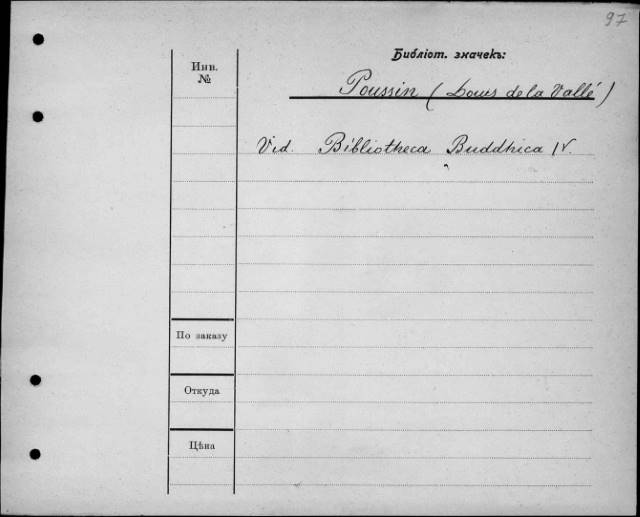 97
Библіот. значекъ:
Инв.
№
Poussin (Louis de la Vallé)
Vid. Bibliotheca Buddhica IV.
По заказу
Откуда
Цѣна